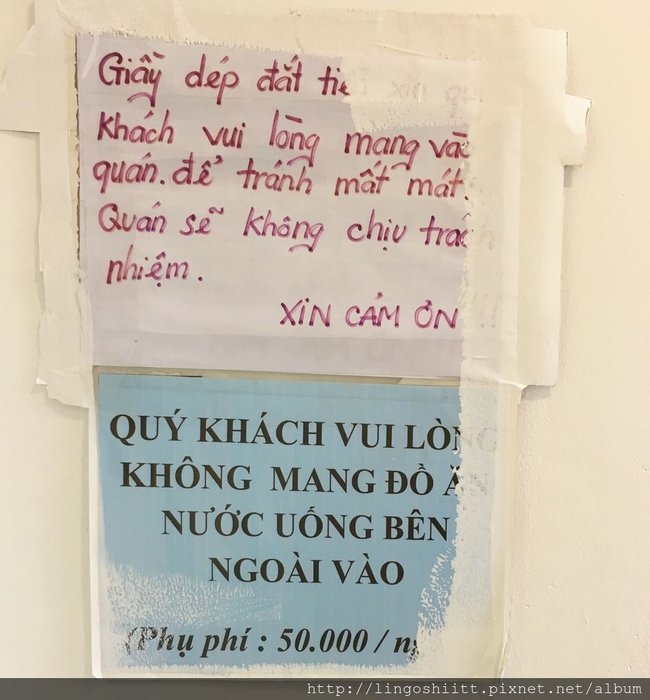 Giầy dép đắt
Khách vui lòng mang
quán. để tránh mất mát.
Quán sẽ không chịu trách
nhiệm.
XIN CẢM ƠN !!
QUÝ KHÁCH VUI LÒNG
KHÔNG MANG ĐỒ ĂN
NƯỚC UỐNG BÊN
NGOÀI VÀO
(Phụ phí : 50.000 /
http://lingoshiitt.pixnet.net/album